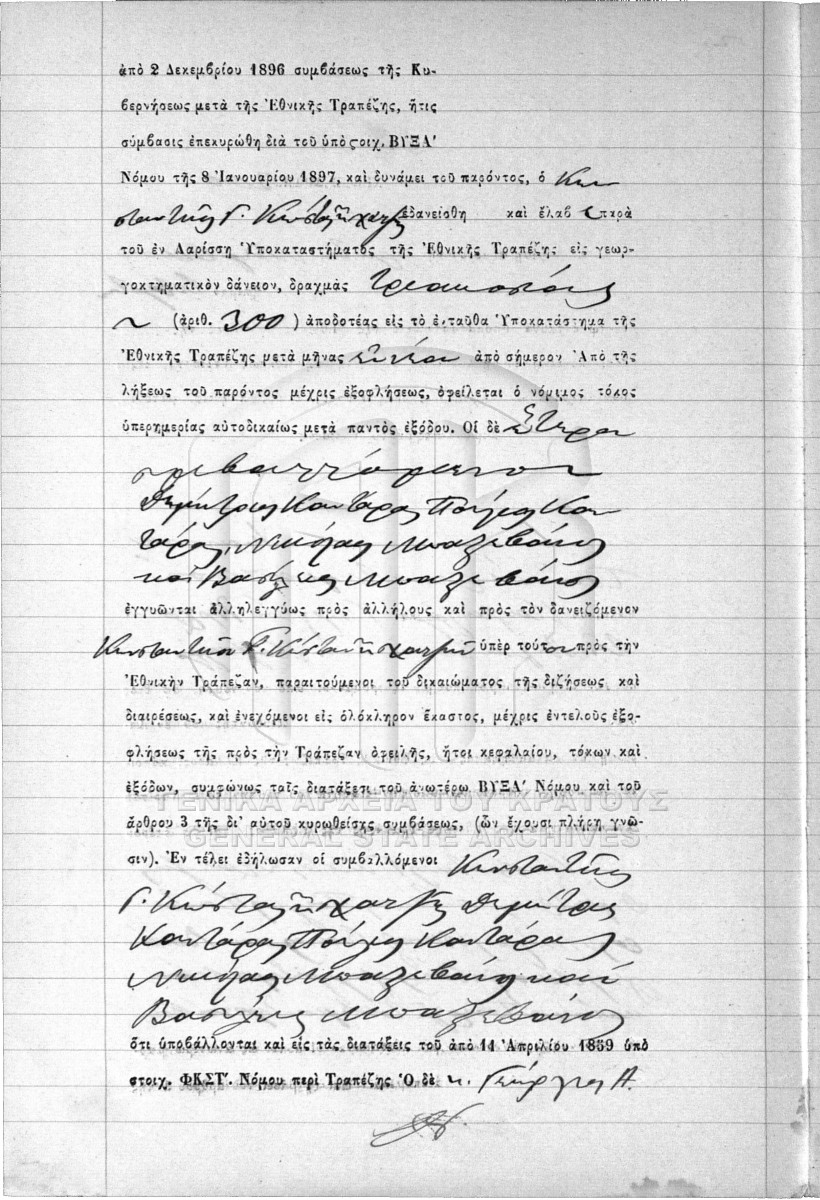 ἀπὸ 2 Δεκεμβρίου 1896 συμβάσεως τῆς Κυ-
βερνήσεως μετὰ τῆς Ἐθνικῆς Τραπέζης, ἥτις
σύμβασις ἐπεκυρώθη διὰ τοῦ ὑπὸ στοιχ. ΒΥΞΑʹ
Νόμου τῆς 8 Ἰανουαρίου 1897, καὶ δυνάμει τοῦ παρόντος, ὁ Κων
σταντῆς Γ. ἐδανείσθη καὶ ἔλαβε παρὰ
τοῦ ἐν Λαρίσσῃ Ὑποκαταστήματος τῆς Ἐθνικῆς Τραπέζης εἰς γεωρ-
γοκτηματικὸν δάνειον, δραχμὰς τριακοσίας
(ἀριθ. 300) ἀποδοτέας εἰς τὸ ἐνταῦθα Ὑποκατάστημα τῆς
Ἐθνικῆς Τραπέζης μετὰ μῆνας ἐννέα ἀπὸ σήμερον Ἀπὸ τῆς
λήξεως τοῦ παρόντος μέχρις ἐξοφλήσεως, ὀφείλεται ὁ νόμιμος τόκος
ὑπερημερίας αὐτοδικαίως μετὰ παντὸς ἐξόδου. Οἱ δὲ ἕτεροι
συμβαλλόμενοι
Δημήτριος Καντάρας Καν
τάρας, Νικόλαος
καὶ Βασίλειος
ἐγγυῶνται ἀλληλεγγύως πρὸς ἀλλήλους καὶ πρὸς τὸν δανειζόμενον
Κωνσταντῖνον Γ. ὑπὲρ τούτου πρὸς τὴν
Ἐθνικὴν Τράπεζαν, παραιτούμενοι τοῦ δικαιώματος τῆς διζήσεως καὶ
διαιρέσεως, καὶ ἐνεχόμενοι εἰς ὁλόκληρον ἕκαστος, μέχρις ἐντελοῦς ἐξο-
φλήσεως τῆς πρὸς τὴν Τράπεζαν ὀφειλῆς, ἤτοι κεφαλαίου, τόκων καὶ
ἐξόδων, συμφώνως ταῖς διατάξεσι τοῦ ἀνωτέρω ΒΥΞΑʹ Νόμου καὶ τοῦ
ΓΕΝΙΚΑ ΑΡΧΕΙΑ ΤΟΥ ΚΡΑΤΟΥΣ
ἄρθρου 3 τῆς δι' αὐτοῦ κυρωθείσης συμβάσεως, (ὧν ἔχουσι πλήρη γνῶ-
GENERAL STATE ARCHIVES
σιν). Ἐν τέλει ἐδήλωσαν οἱ συμβαλλόμενοι Κωνσταντῆς
Γ. Δημήτριος
Καντάρας Καντάρας
Νικόλαος καὶ
Βασίλειος
ὅτι ὑποβάλλονται καὶ εἰς τὰς διατάξεις τοῦ ἀπὸ 11 Ἀπριλίου 1859 ὑπὸ
στοιχ. ΦΚΣΤʹ. Νόμου περὶ Τραπέζης Ὁ δὲ κ. Γεώργιος Α.